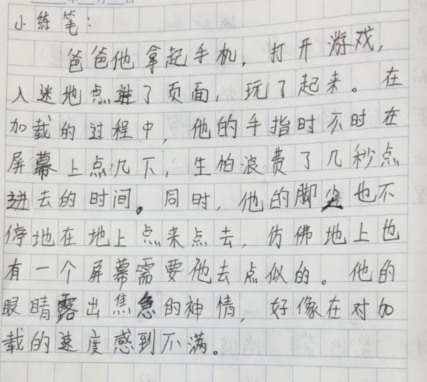 小练笔:
爸爸他拿起手机,打开游戏,
入迷地点进了页面,玩了起来。在
加载的过程中,他的手指时不时在
屏幕上点几下,生怕浪费了几秒点
进去的时间。同时,他的脚尖也不
停地在地上点来点去,仿佛地上也
有一个屏幕需要他去点似的。他的
眼睛露出焦急的神情,好像在对加
载的速度感到不满。